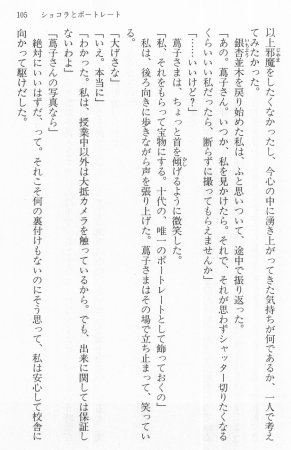 105　ショコラとポートレート
以上邪魔をしたくなかったし、今心の中に湧き上がってきた気持ちが何であるか、一人で考え
てみたかった。
　銀杏並木を戻り始めた私は、ふと思いついて、途中で振り返った。
「あの。蔦子さん。いつか、私を見かけたら。それで、それが思わずシャッター切りたくなる
くらいいい私だったら、断らずに撮ってもらえませんか」
「……いいけど？」
　蔦子さまは、ちょっと首を傾げるように微笑した。
「私、それをもらって宝物にする。十代の、唯一のポートレートとして飾っておくの」
　私は、後ろ向きに歩きながら声を張り上げた。蔦子さまはその場で立ち止まって、笑ってい
る。
「大げさな」
「いえ。本当に」
「わかった。私は、授業中以外は大抵カメラを触っているから。でも、出来に関しては保証し
ないわよ」
「蔦子さんの写真なら」
　絶対にいいはずだ、って。それこそ何の裏付けもないのにそう思って、私は安心して校舎に
向かって駆けだした。